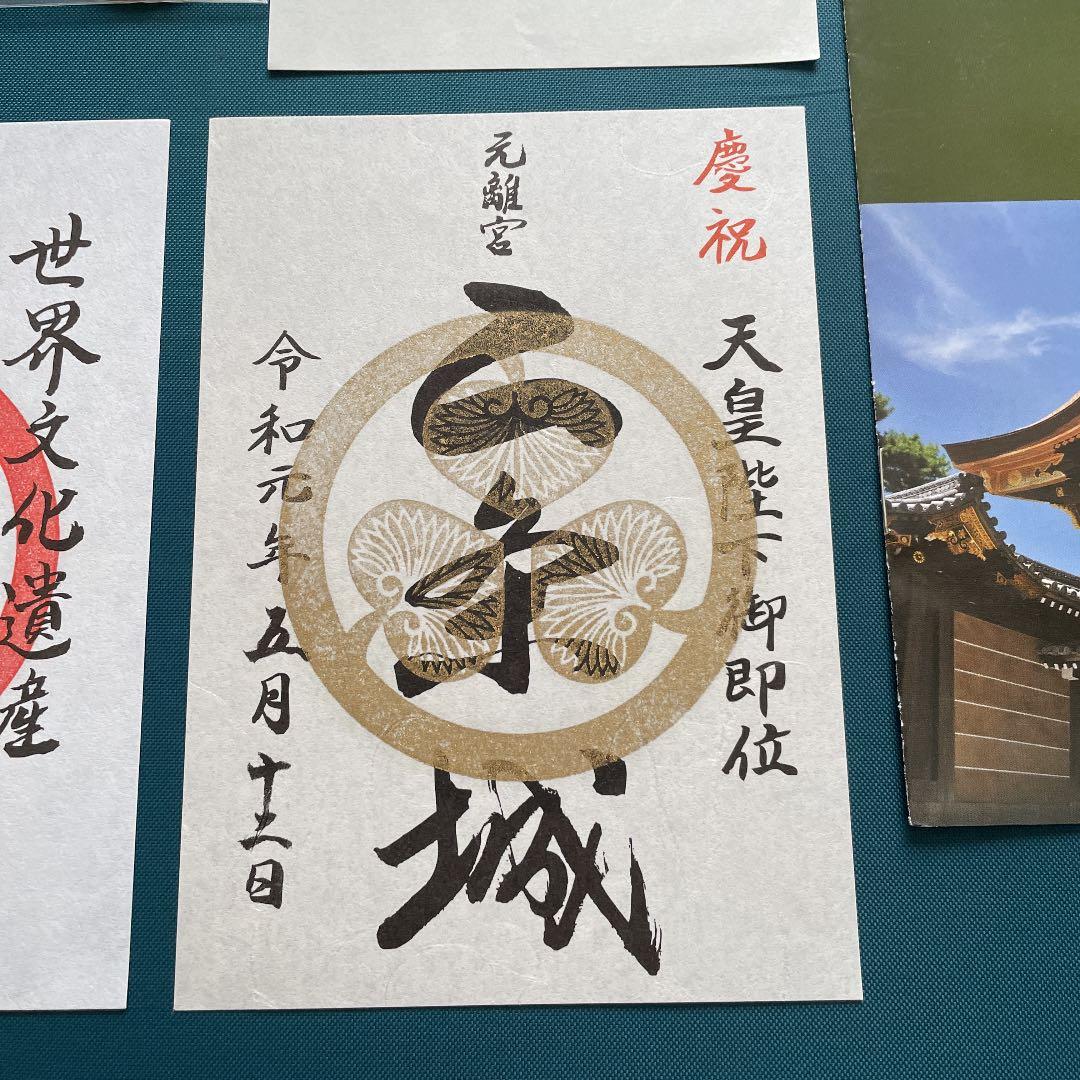 慶祝
天皇陛下御即位
元離宮
二条城
令和元年五月十三日
世界文化遺産